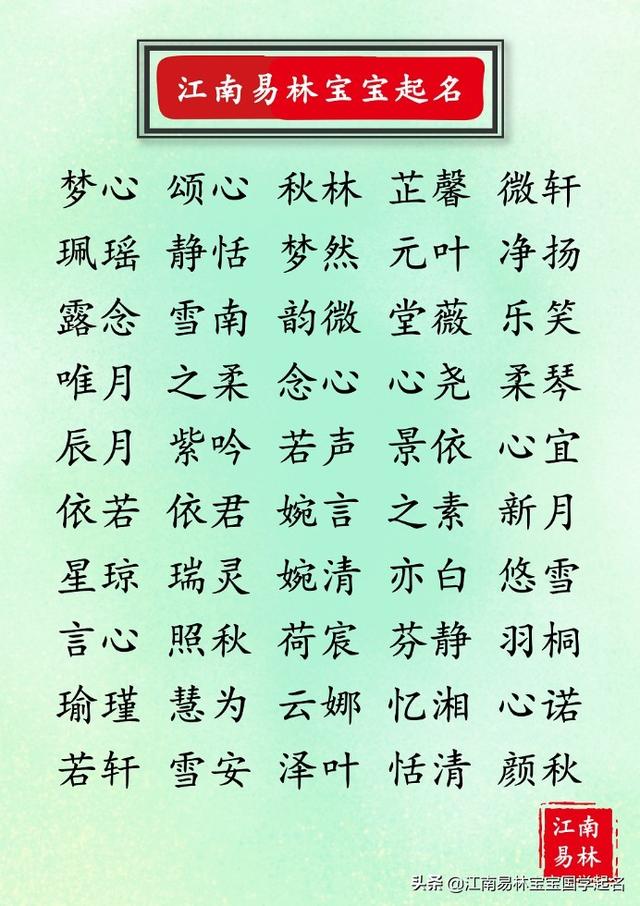 江南易林宝宝起名
梦心 颂心 秋林 芷馨 微轩
珮瑶 静恬 梦然 元叶 净扬
露念 雪南 韵微 堂薇 乐笑
唯月 之柔 念心 心尧 柔琴
辰月 紫吟 若声 景依 心宜
依若 依君 婉言 之素 新月
星琼 瑞灵 婉清 亦白 悠雪
言心 照秋 荷宸 芬静 羽桐
瑜瑾 慧为 云娜 忆湘 心诺
若轩 雪安 泽叶 恬清 颜秋
江南
易林
头条 @江南易林宝宝国学起名